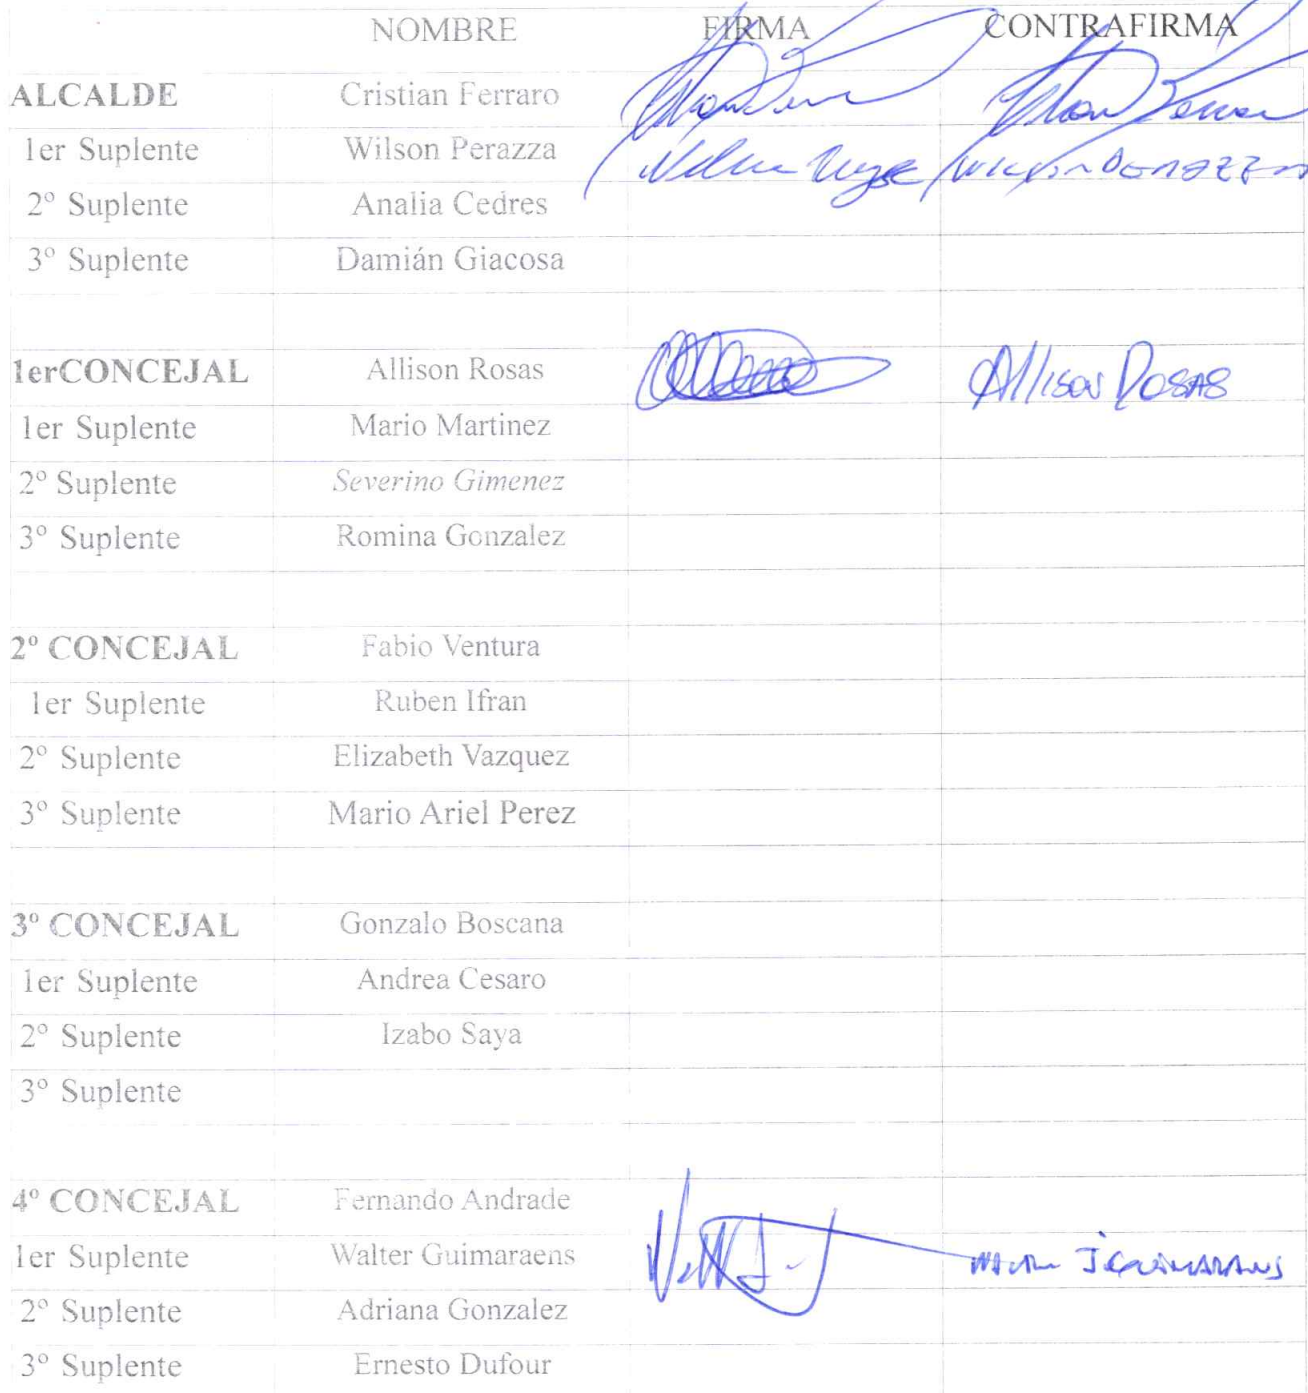 NOMBRE FIRMA CONTRAFIRMA
ALCALDE Cristian Ferraro
1er Suplente Wilson Perazza
2º Suplente Analia Cedres
3º Suplente Damián Giacosa
1erCONCEJAL Allison Rosas Allison Rosas
1er Suplente Mario Martinez
2º Suplente Severino Gimenez
3º Suplente Romina Gonzalez
2º CONCEJAL Fabio Ventura
1er Suplente Ruben Ifran
2º Suplente Elizabeth Vazquez
3º Suplente Mario Ariel Perez
3º CONCEJAL Gonzalo Boscana
1er Suplente Andrea Cesaro
2º Suplente Izabo Saya
3º Suplente
4º CONCEJAL Fernando Andrade
1er Suplente Walter Guimaraens
2º Suplente Adriana Gonzalez
3º Suplente Ernesto Dufour